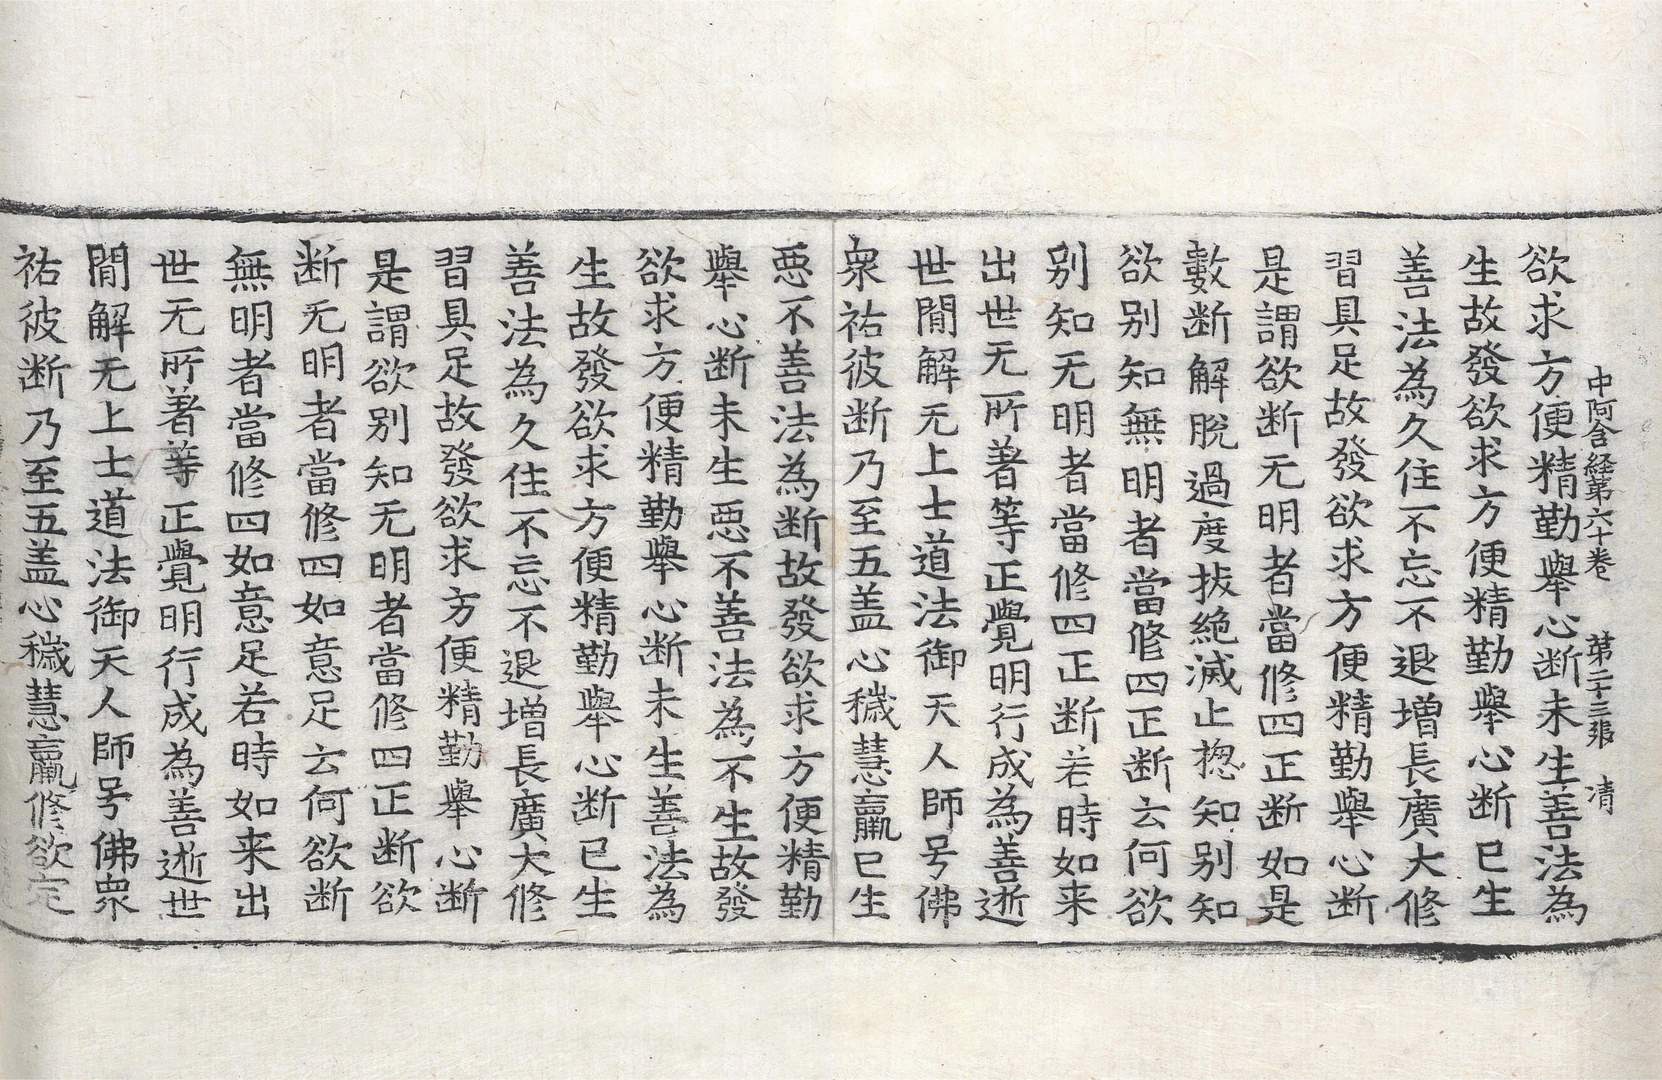 中阿含経第六十卷 第二十三張 清
欲求方便精勤舉心断未生善法為
生故發欲求方便精勤舉心断已生
善法為久住不忘不退增長廣大修
習具足故發欲求方便精勤舉心断
是謂欲断无明者當修四正断如是
數断解脫過度拔絶滅止揔知别知
欲别知無明者當修四正断云何欲
别知无明者當修四正断若時如来
出世无所著等正覺明行成為善逝
世間解无上士道法御天人師号佛
衆祐彼断乃至五盖心穢慧羸已生
惡不善法為断故發欲求方便精勤
舉心断未生惡不善法為不生故發
欲求方便精勤舉心断未生善法為
生故發欲求方便精勤舉心断已生
善法為久住不忘不退增長廣大修
習具足故發欲求方便精勤舉心断
是謂欲别知无明者當修四正断欲
断无明者當修四如意足云何欲断
無明者當修四如意足若時如来出
世无所著等正覺明行成為善逝世
間解无上士道法御天人師号佛衆
祐彼断乃至五盖心穢慧羸修欲定